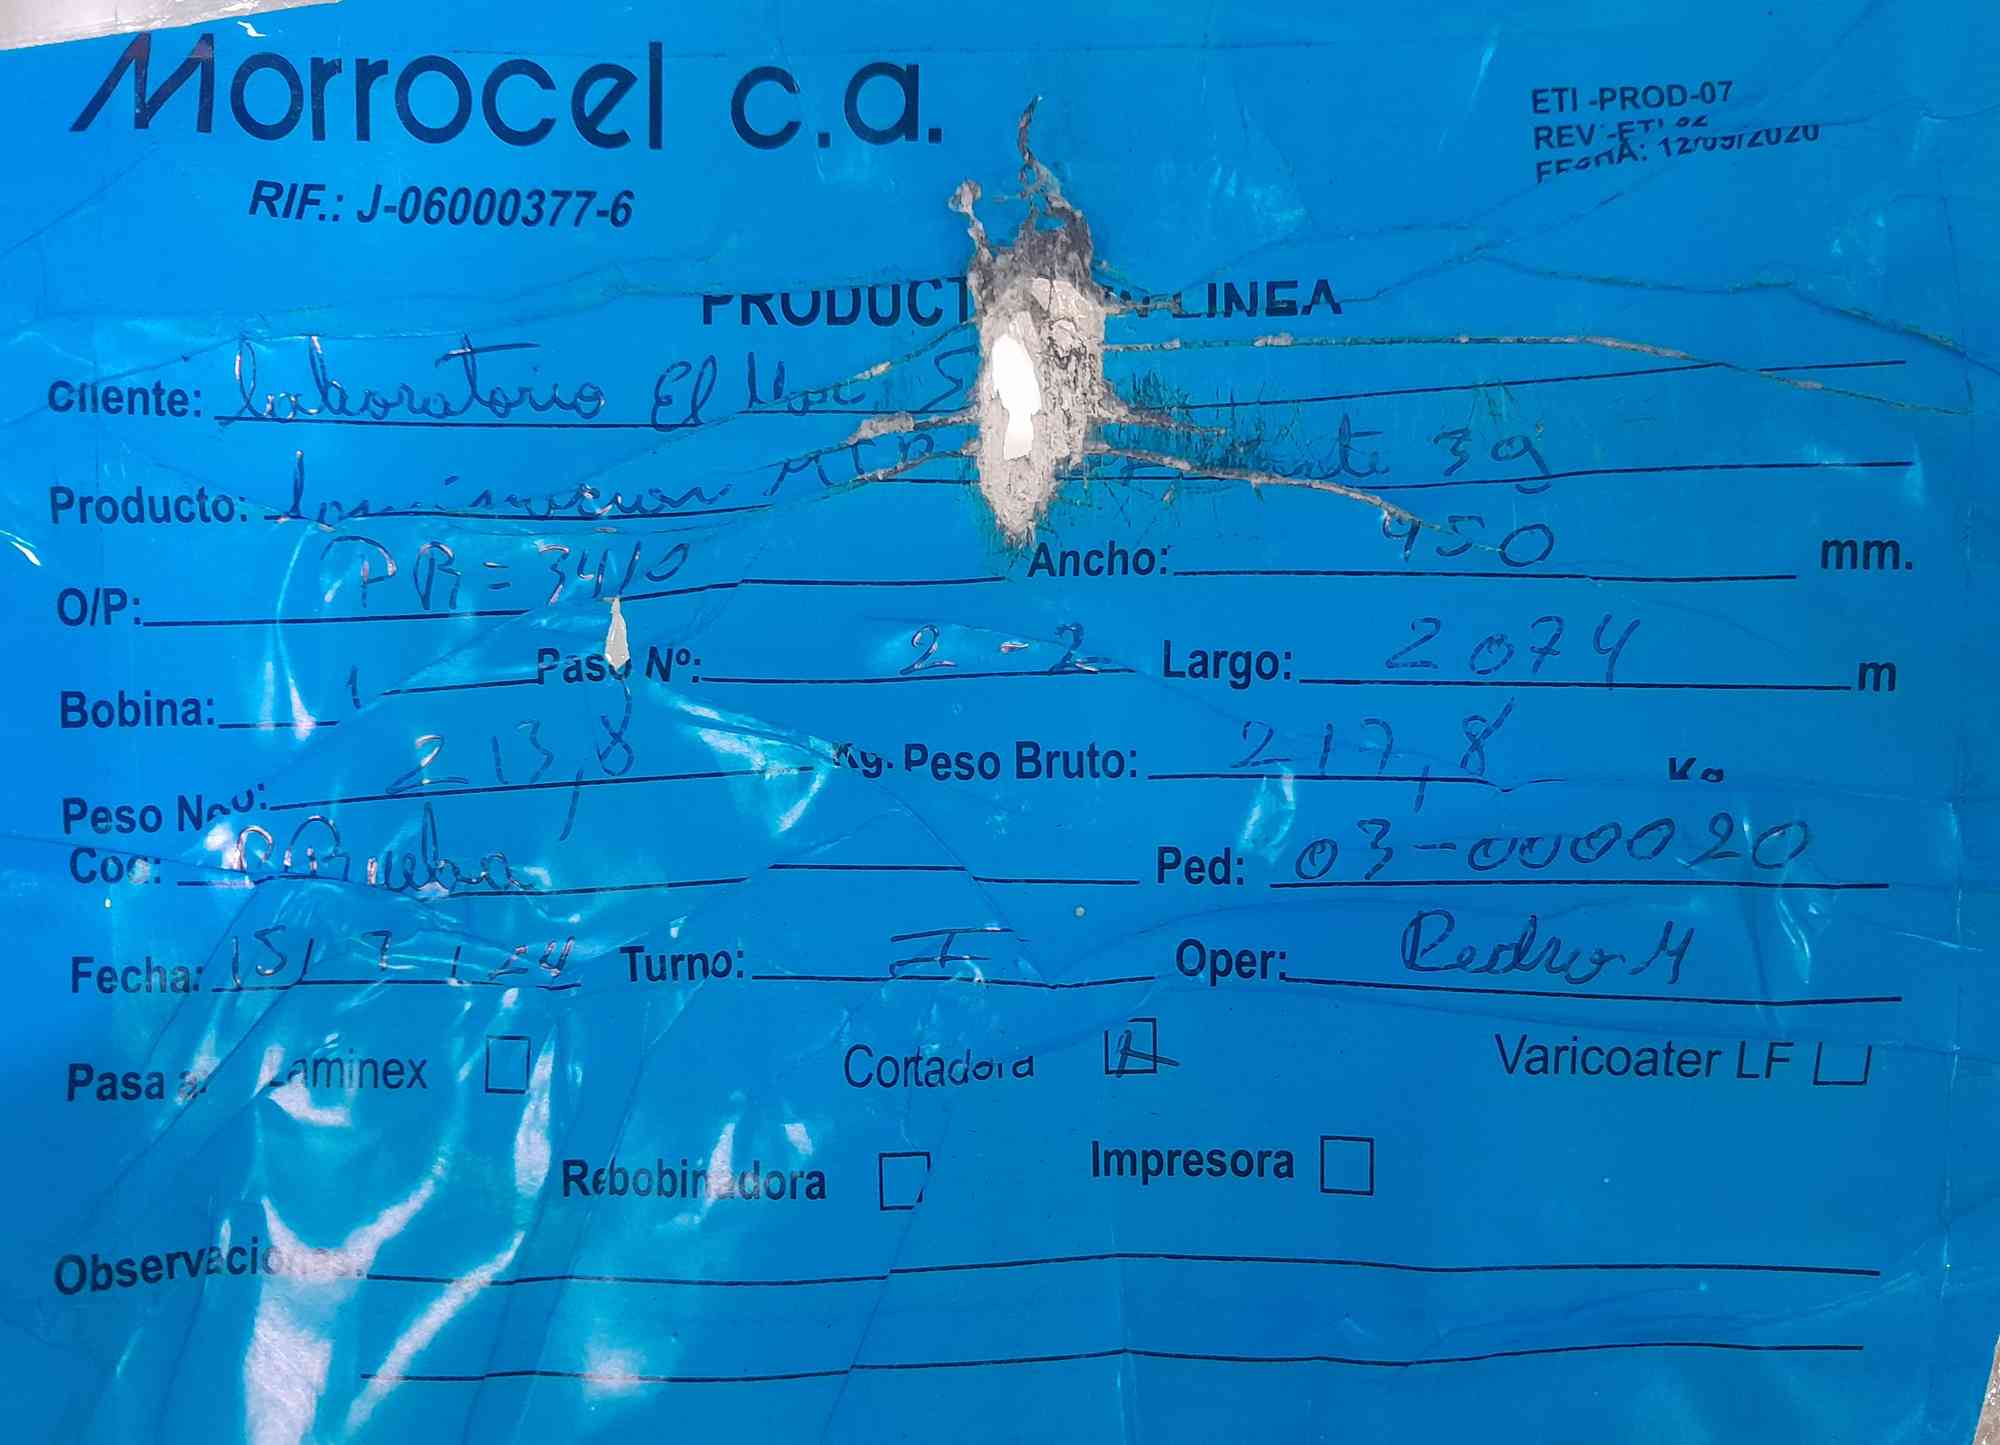 Morrocel c.a.
RIF.: J-06000377-6
ETI -PROD-07
REV.-ETI 02
FECHA: 12/09/2020
PRODUCT LINEA
Cliente: Laboratorio El
Producto: Laminacion 3g
O/P: PR=3410 Ancho: 450 mm.
Bobina: 1 Paso Nº: 2-2 Largo: 2074 m
Peso Neto: 213,8 Kg. Peso Bruto: 217,8 Kg
Cod: PRueba Ped: 03-000020
Fecha: 15/7/24 Turno: I Oper: Pedro M
Pasa a: Laminex Cortadora Varicoater LF
Rebobinadora Impresora
Observaciones: